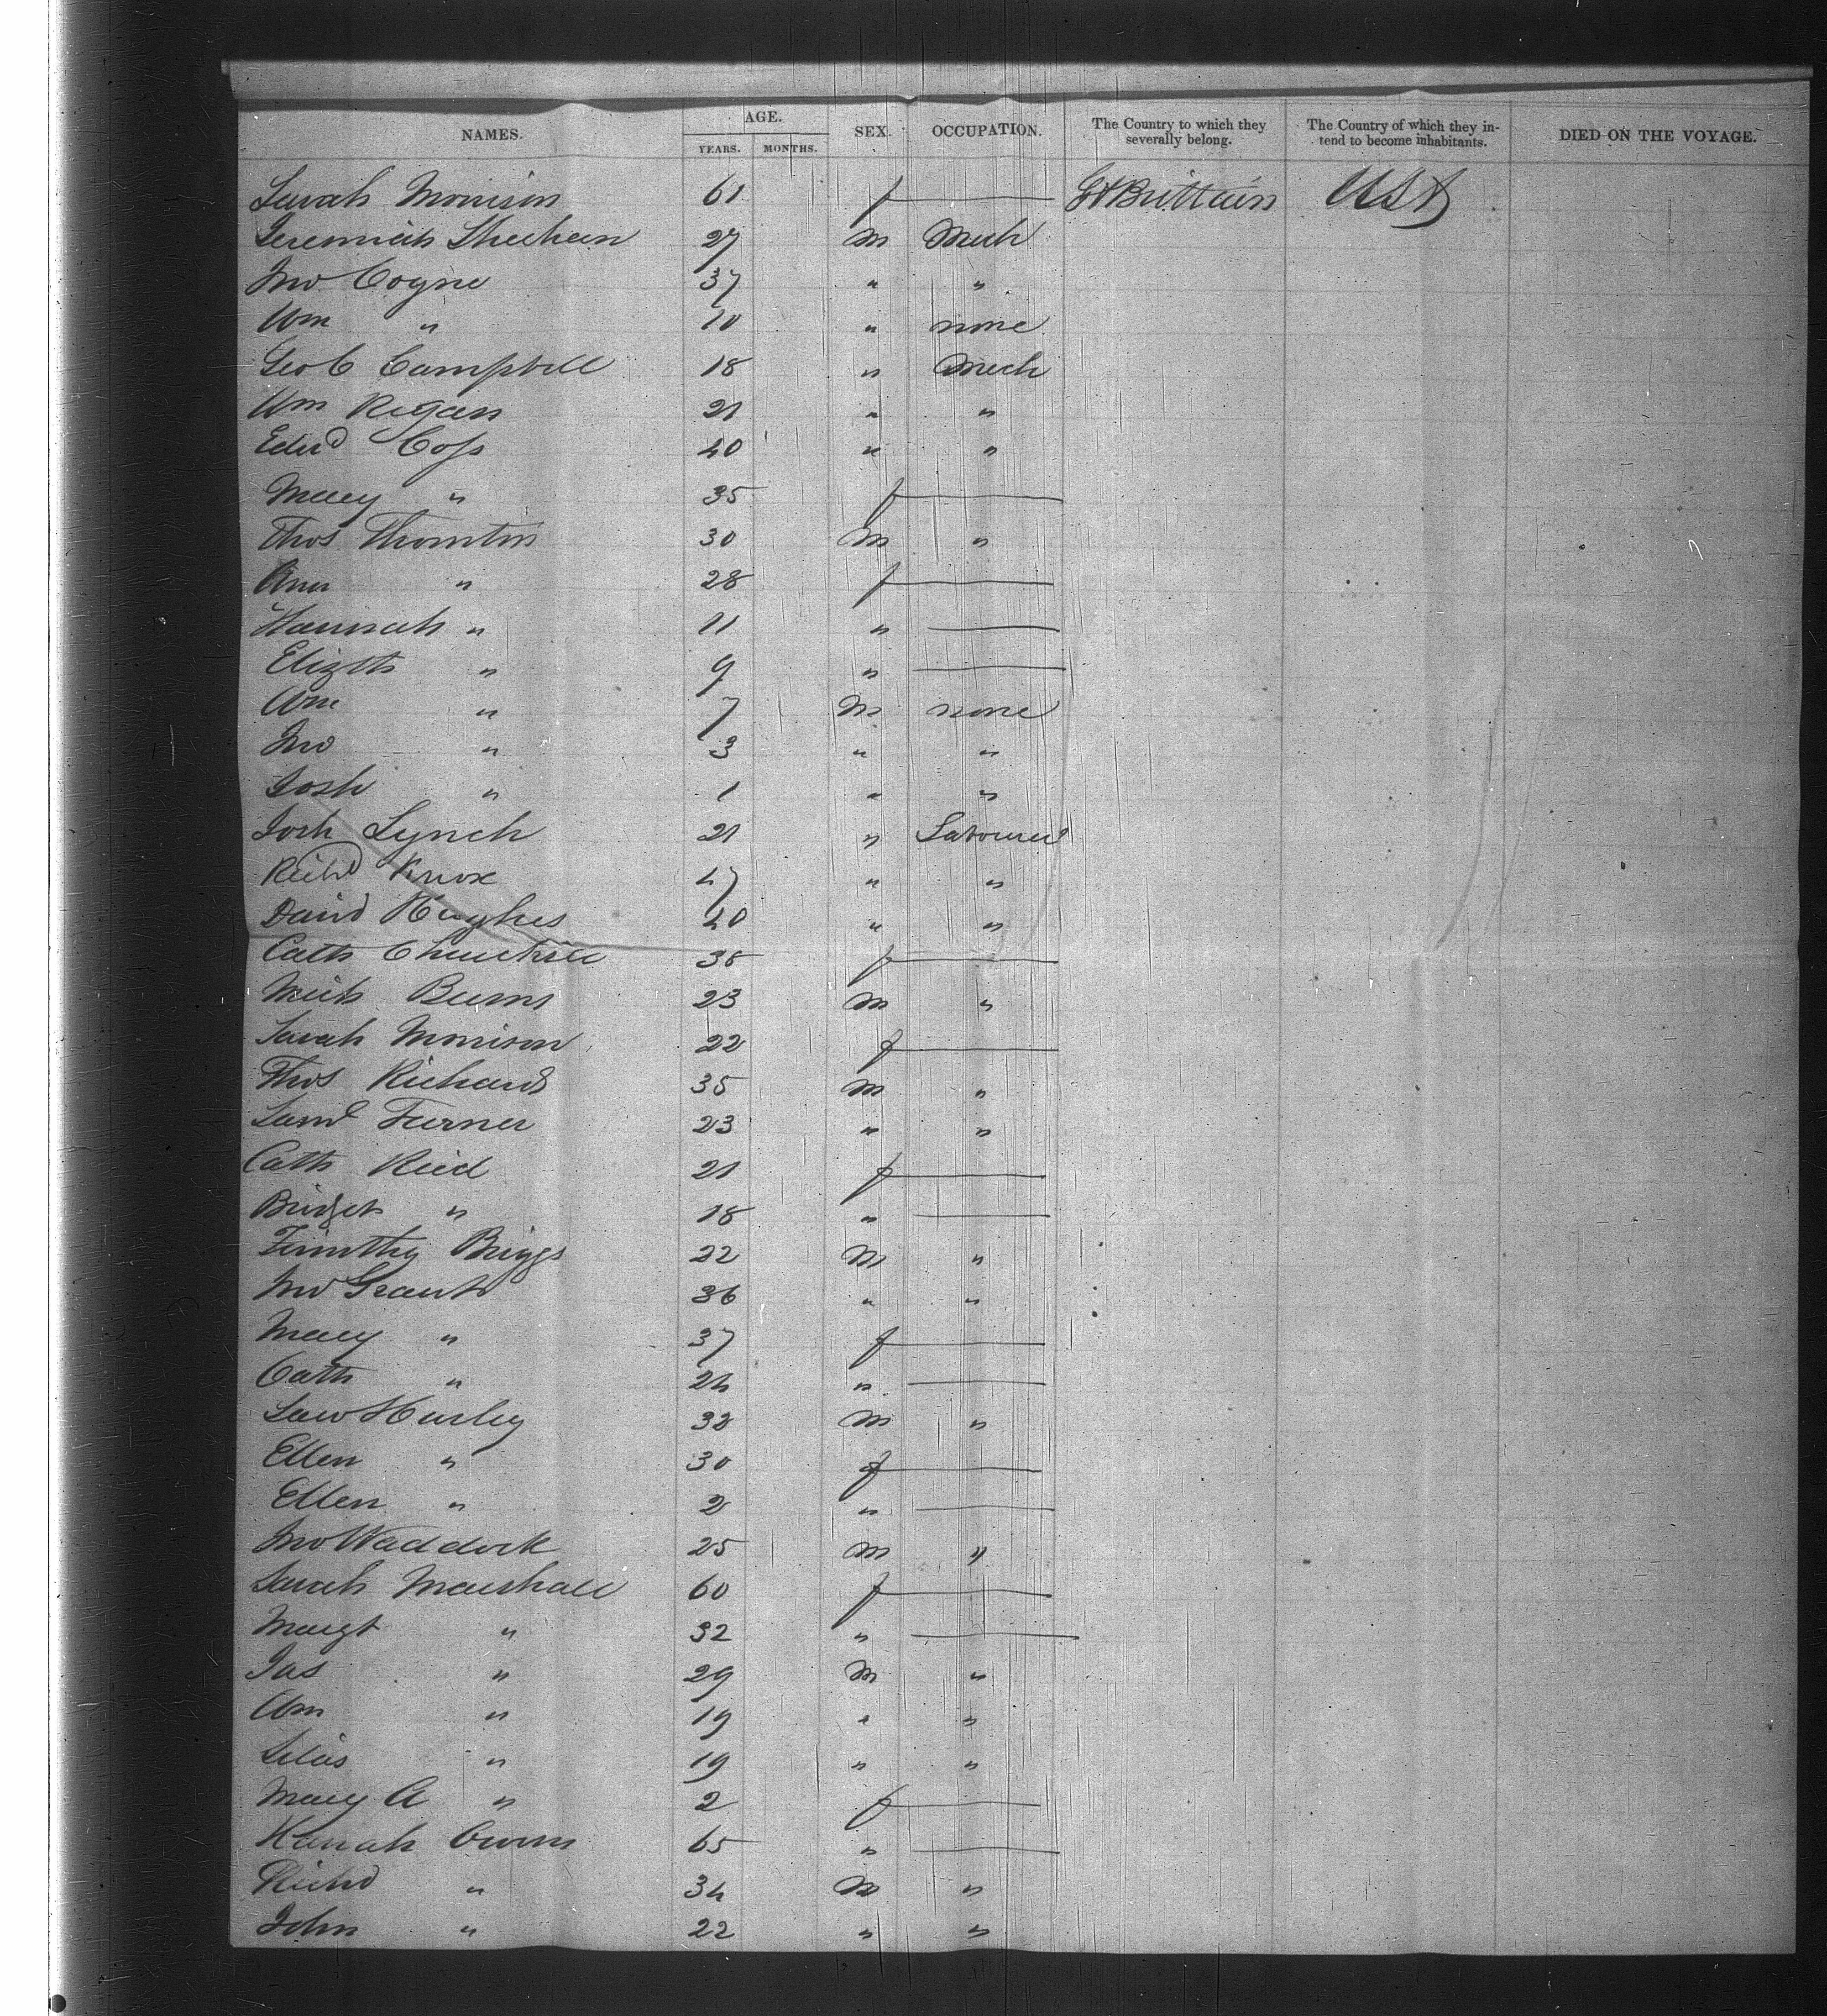 NAMES. AGE. SEX. OCCUPATION. The Country to which they severally belong. The Country of which they intend to become inhabitants. DIED ON THE VOYAGE.
YEARS. MONTHS.
Sarah Morrison 61 f — Gt Brittain USA
Jeremiah Sheehan 27 m Mech
Jno Coyne 37 " "
Wm " 10 " none
Geo C Campbell 18 " Mech
Wm Regan 21 " "
Edwd Coss 40 " "
Mary " 35 f —
Thos Thornton 30 m "
Ann " 28 f —
Hannah " 11 " —
Elizth " 9 " —
Wm " 7 m none
Jno " 3 " "
Josh " 1 " "
Josh Lynch 21 " Labourer
Richd Knox 47 " "
David Hughes 40 " "
Cath Churchill 38 f —
Mich Burns 23 m "
Sarah Morrison 22 f —
Thos Richards 35 m "
Saml Turner 23 " "
Cath Ried 21 f —
Bridget " 18 " —
Timothy Briggs 22 m "
Jno Grant 36 " "
Mary " 37 f —
Cath " 24 " —
Law Hurley 32 m "
Ellen " 30 f —
Ellen " 2 " —
Jno Waddock 25 m "
Sarah Marshall 60 f —
Margt " 32 " —
Jas " 29 m "
Wm " 19 " "
Silas " 19 " "
Mary A " 2 f —
Hannah Owens 65 " —
Richd " 34 m "
John " 22 " "